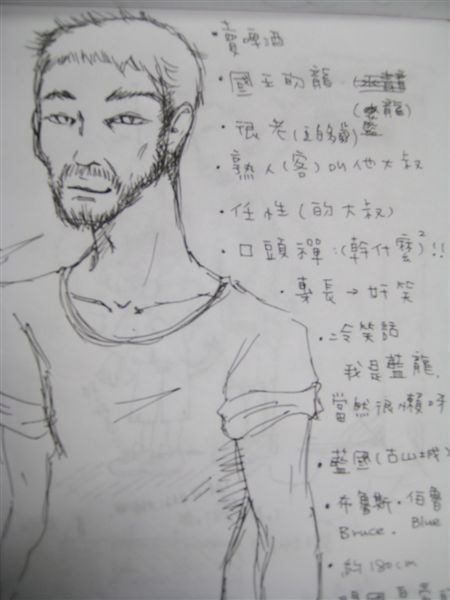 ·賣啤酒
·國王的龍
(龍)
·很老(主的
·熟人(客)叫他大叔
·任性(的大叔)
·口頭禪:(幹什麼)²!!
·專長→奸笑
·冷笑話
我是藍龍,
當然很懶呀
·藍國(古山城)
·布魯斯·伯魯
Bruce. Blue
·約180cm